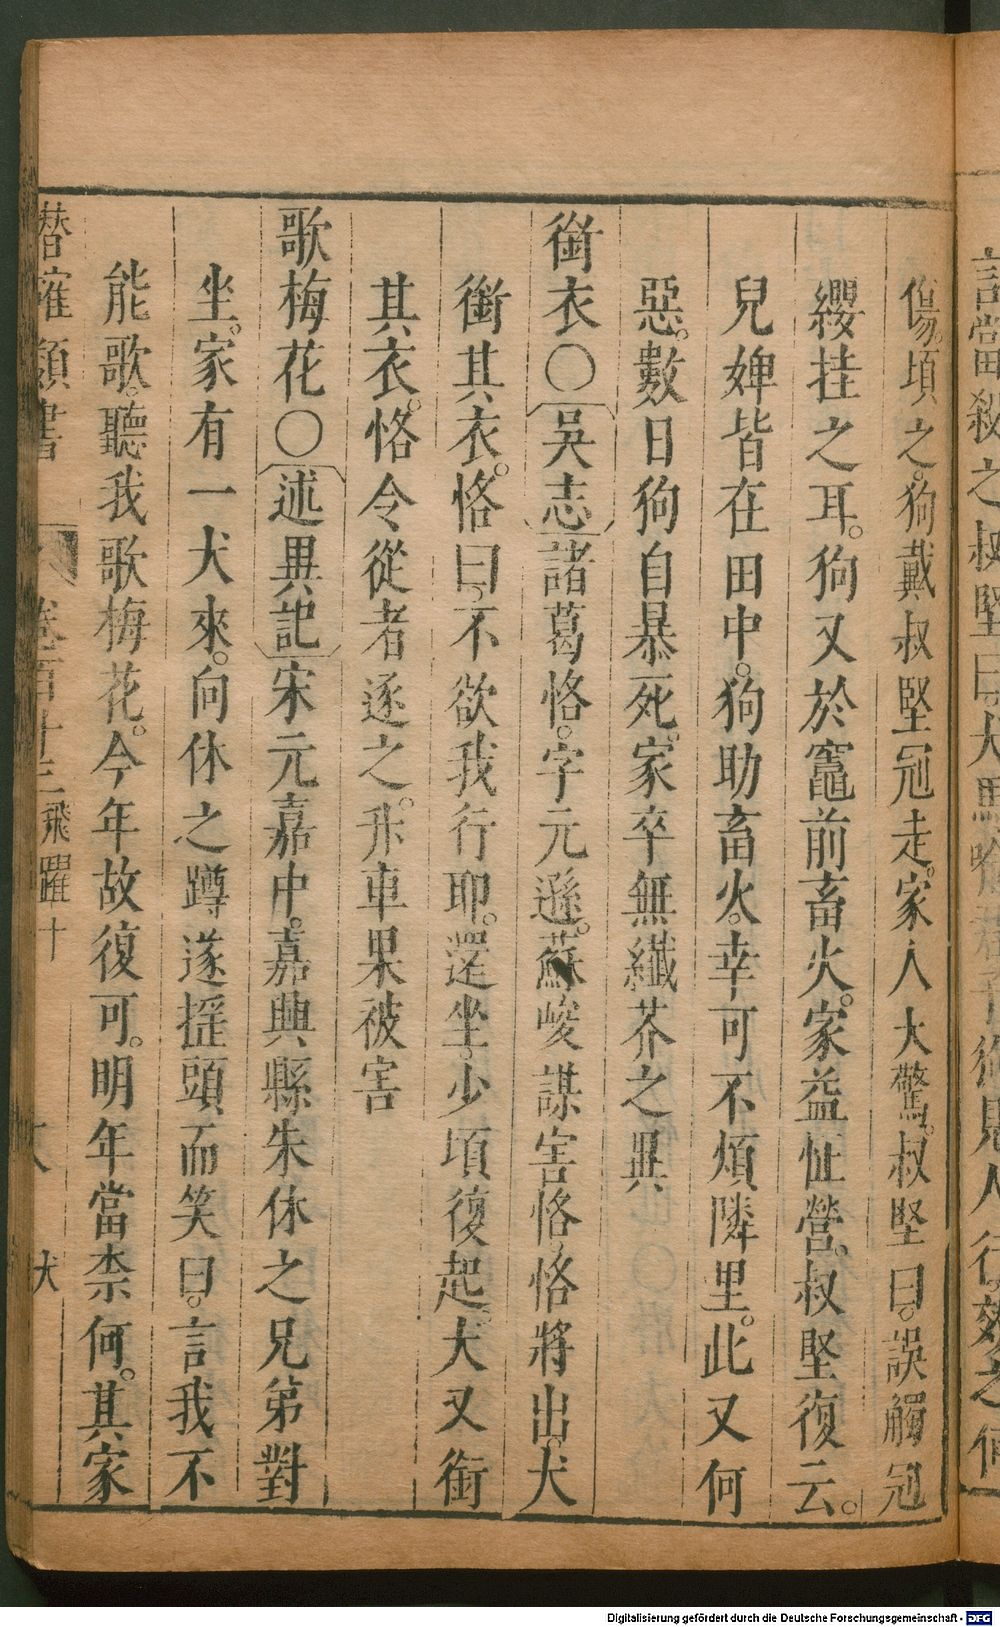 言當殺之叔堅曰犬馬喻君子狗見人行效之何
傷。頃之。狗戴叔堅冠走。家人大驚。叔堅曰。誤觸冠
纓挂之耳。狗又於竈前畜火。家益怔營。叔堅復云。
兒婢皆在田中。狗助畜火。幸可不煩隣里。此又何
惡。數日狗自暴死。家卒無纖芥之異
銜衣〇吳志諸葛恪。字元遜。蘇峻謀害恪。恪將出。犬
銜其衣。恪曰。不欲我行耶。還坐。少頃復起。犬又銜
其衣。恪令從者逐之。升車果被害
歌梅花〇述異記宋元嘉中。嘉興縣朱休之兄弟對
坐。家有一犬來。向休之蹲遂搖頭而笑曰。言我不
能歌。聽我歌梅花。今年故復可。明年當柰何。其家
潛確類書 卷百十三飛躍十 犬
Digitalisierung gefördert durch die Deutsche Forschungsgemeinschaft - DFG